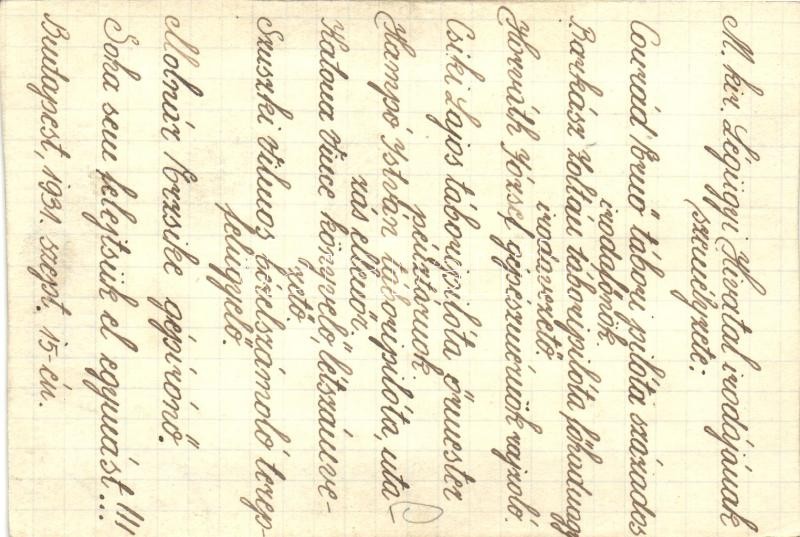 M. kir. Légügyi Hivatal irodájának
személyzete:
Conrád Ernő tábori pilóta százados
irodafőnök.
Barkász Zoltán táboripilóta főhadnagy
irodavezető.
Horváth József gépészmérnök rajzoló.
Csiki Lajos táboripilóta őrmester
pénztárnok
Hampó István táboripilóta, uta-
zás ellenőr.
Katona Vince könyvelő, létszámve-
zető.
Szuszki Vilmos beszámoló terep-
felügyelő.
Molnár Erzsike gépírónő.
Soha sem felejtsük el egymást...!!!
Budapest, 1931. szept. 15-én.